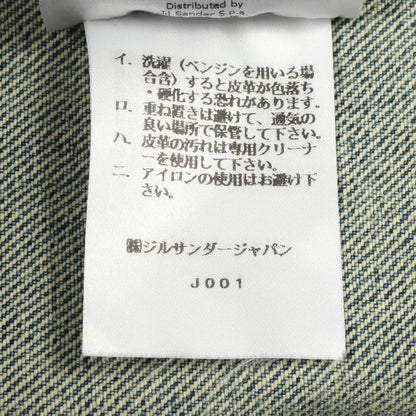 Distributed by
Jil Sander S.p.a.
イ. 洗濯（ベンジンを用いる場
合含）すると皮革が色落ち
・硬化する恐れがあります。
ロ. 重ね置きは避けて、通気の
良い場所で保管して下さい。
ハ. 皮革の汚れは専用クリーナ
ーを使用して下さい。
ニ. アイロンの使用はお避け下
さい。
㈱ジルサンダージャパン
J001